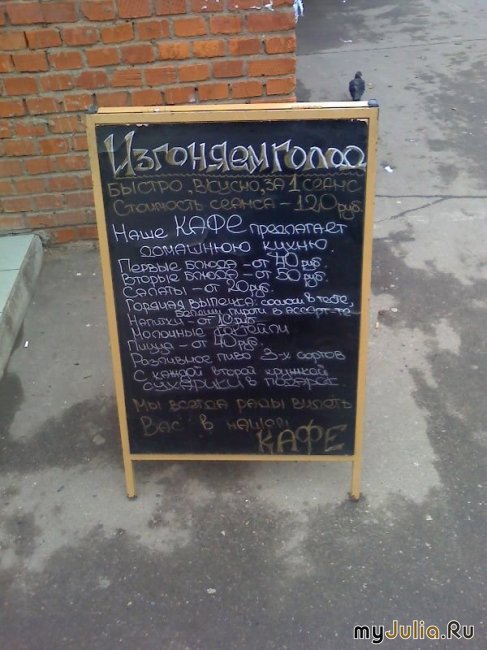 Изгоняем голод
Быстро, вкусно, за 1 сеанс
Стоимость сеанса - 120 руб.
Наше КАФЕ предлагает
домашнюю кухню.
Первые блюда - от 40 руб.
Вторые блюда - от 50 руб.
Салаты - от 20 руб.
Горячая выпечка: сосиски в тесте,
пироги в ассорт-те
Напитки - от 10 руб.
Молочные коктейли
Пицца - от 40 руб.
Разливное пиво 3-х сортов
С каждой второй кружкой
сухарики в подарок.
Мы всегда рады видеть
Вас в нашем
КАФЕ
myJulia.Ru